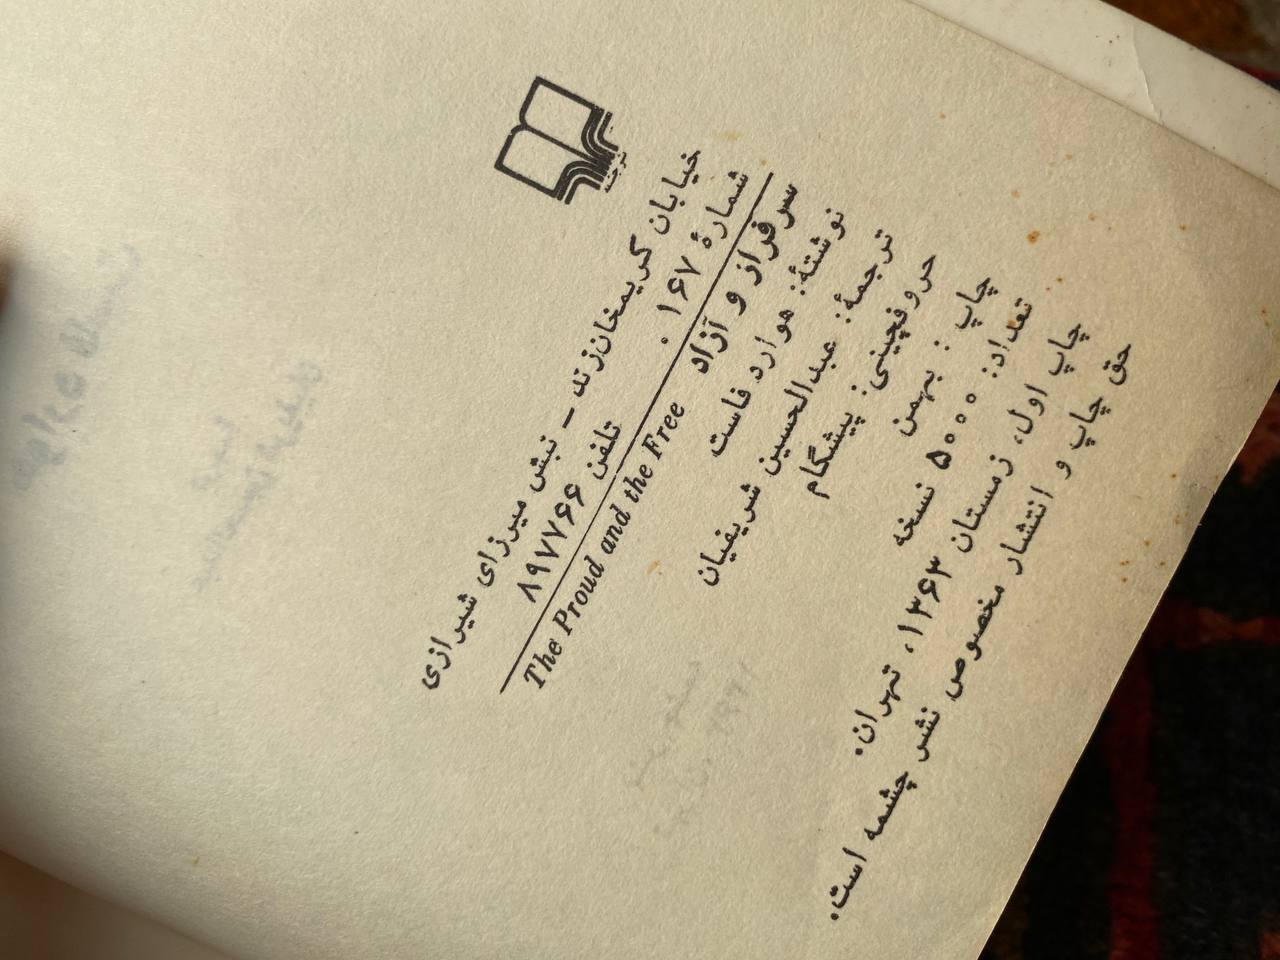 خیابان کریمخان‌زند – نبش میرزای شیرازی
شمارهٔ ۱۶۷ . تلفن ۸۹۷۷۶۶
سرفراز و آزاد The Proud and the Free
نوشتهٔ: هوارد فاست
ترجمهٔ: عبدالحسین شریفیان
حروفچینی: پیشگام
چاپ : بهمن
تعداد: ۵۰۰۰ نسخه
چاپ اول، زمستان ۱۳۶۳، تهران.
حق چاپ و انتشار مخصوص نشر چشمه است.